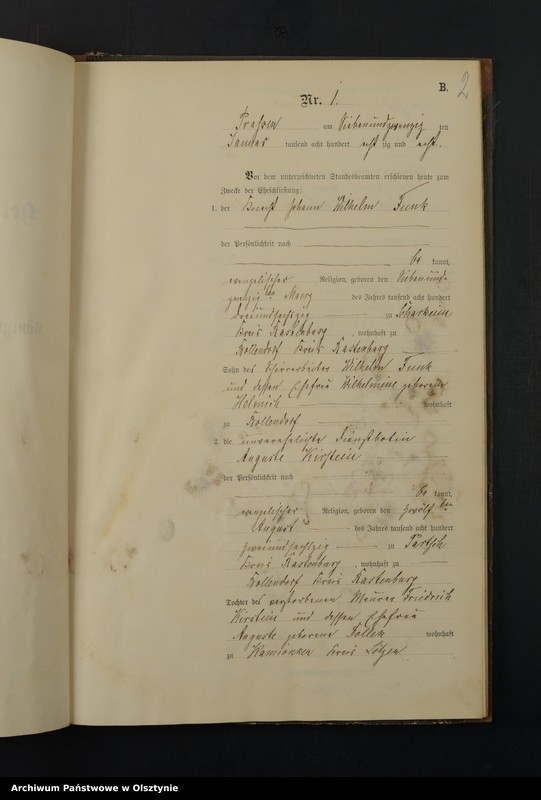 B. 2
Nr. 1.
Prassen am Siebenundzwanzig ten
Januar tausend acht hundert acht zig und acht.
Vor dem unterzeichneten Standesbeamten erschienen heute zum
Zwecke der Eheschließung:
1. der Knecht Johann Wilhelm Funk
der Persönlichkeit nach
be kannt,
evangelischer Religion, geboren den Siebenund-
zwanzigsten März des Jahres tausend acht hundert
dreiundsechszig zu Scharkeim
Kreis Rastenburg, wohnhaft zu
Kollendorf Kreis Rastenburg
Sohn des Wilhelm Funk
und dessen Ehefrau Wilhelmine geborene
wohnhaft
zu Kollendorf
2. die unverehelichte Dienstbotin
Auguste Kirstein
der Persönlichkeit nach
be kannt,
evangelischer Religion, geboren den zwölften
August des Jahres tausend acht hundert
zweiundsechszig zu Partsch
Kreis Rastenburg, wohnhaft zu
Kollendorf Kreis Rastenburg
Tochter des verstorbenen Maurer Friedrich
Kirstein und dessen Ehefrau
Auguste geborene wohnhaft
zu Kamionken Kreis Lötzen
Archiwum Państwowe w Olsztynie